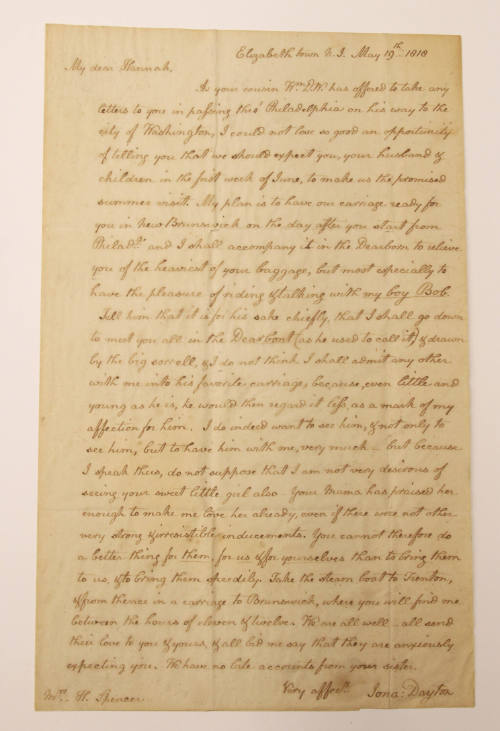 Elizabeth town N. J. May 19th 1818
My dear Hannah,
As your cousin Wm D.W. has offered to take any
letters to you in passing thro' Philadelphia on his way to the
city of Washington, I could not lose so good an opportunity
of telling you that we should expect you, your husband &
children in the first week of June, to make us the promised
summer visit. My plan is to have our carriage ready for
you in New Brunswick on the day after you start from
Philada and I shall accompany it in the Dearborn to relieve
you of the heaviest of your baggage, but most especially to
have the pleasure of riding & talking with my boy Bob.
Tell him that it is for his sake chiefly, that I shall go down
to meet you all in the Dearbont (as he used to call it) & drawn
by the big sorrell, & I do not think I shall admit any other
with me into his favorite carriage, because, even little and
young as he is, he would then regard it less, as a mark of my
affection for him. I do indeed want to see him, & not only to
see him, but to have him with me, very much – but because
I speak thus, do not suppose that I am not very desirous of
seeing your sweet little girl also – Your Mama has praised her
enough to make me love her already, even if there were not other
very strong & irresistible inducements. You cannot therefore do
a better thing for them, for us & for yourselves than to bring them
to us, & to bring them speedily. Take the steam boat to Trenton,
& from thence in a carriage to Brunswick, where you will find me
between the hours of eleven & twelve. We are all well – all send
their love to you & yours, & all bid me say that they are anxiously
expecting you. We have no late accounts from your sister.
Very affecty. Jona: Dayton
Mrs. H. Spencer